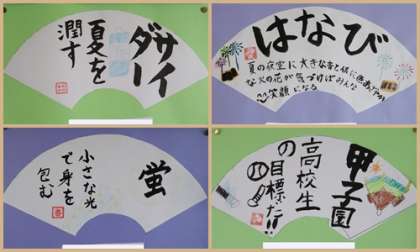 サイ
ダー
夏を
潤す
はなび
夏の夜空に大きな音と共に色あざやか
な火の花が気づけばみんな
笑顔になる
蛍
小さな光
で身を
包む
甲子園
高校生
の目標だ!!